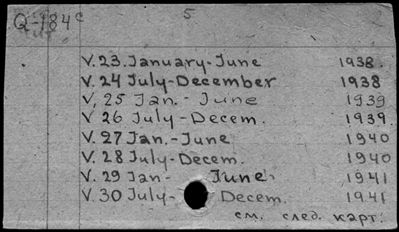 Q-184c 5
V. 23. January-June 1938.
V. 24 July-December 1938
V. 25 Jan. - June 1939
V. 26 July-Decem. 1939.
V. 27 Jan.-June 1940
V. 28 July-Decem. 1940
V. 29 Jan- June. 1941
V. 30 July- Decem. 1941
см. след. карт.